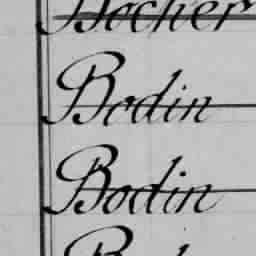 Bocher
Bodin
Bodin